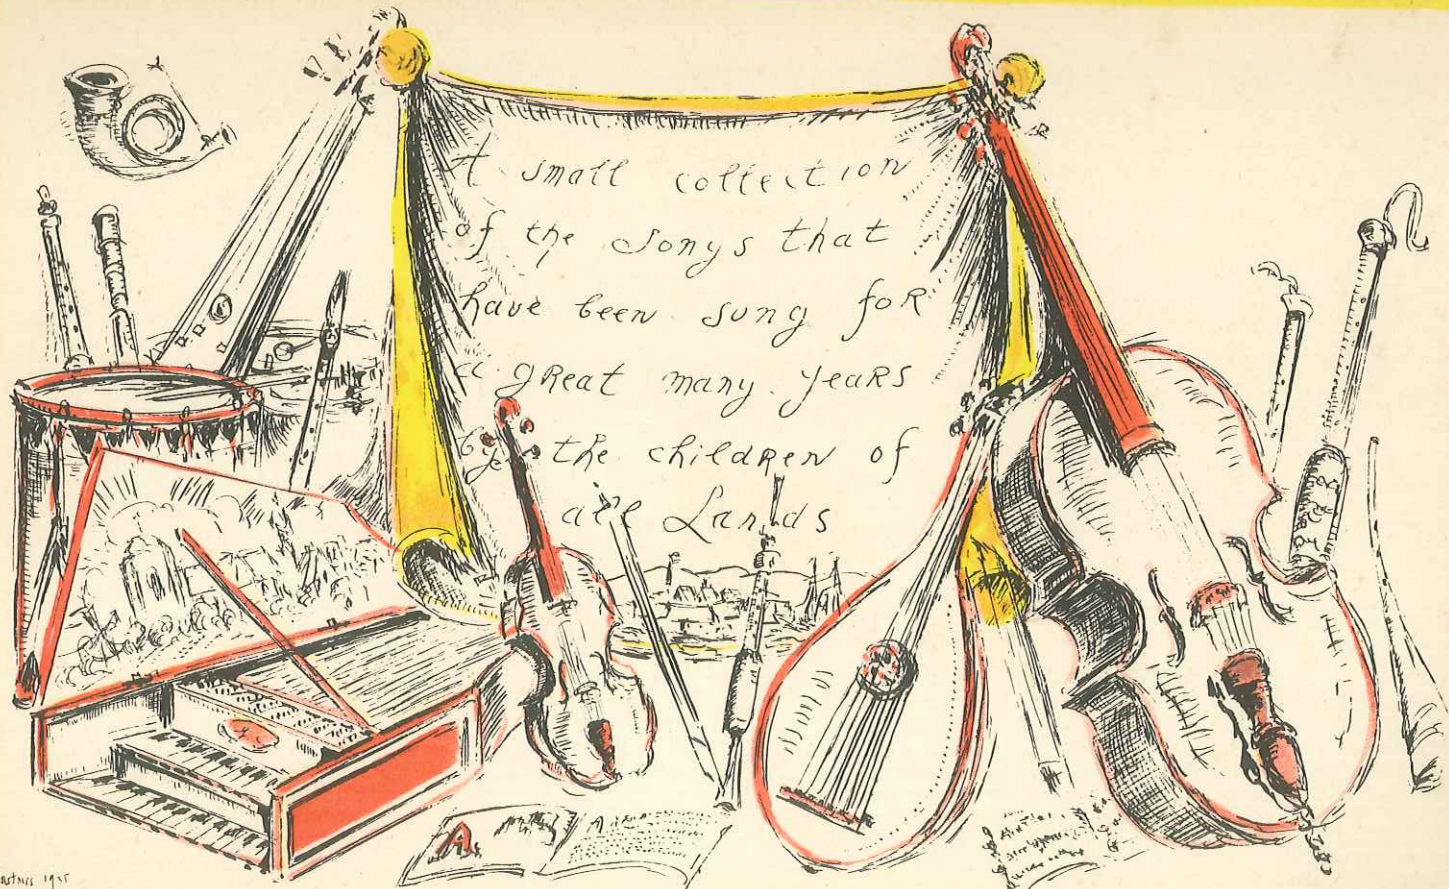 A small collection
of the songs that
have been sung for
a great many years
by the children of
all Lands
A